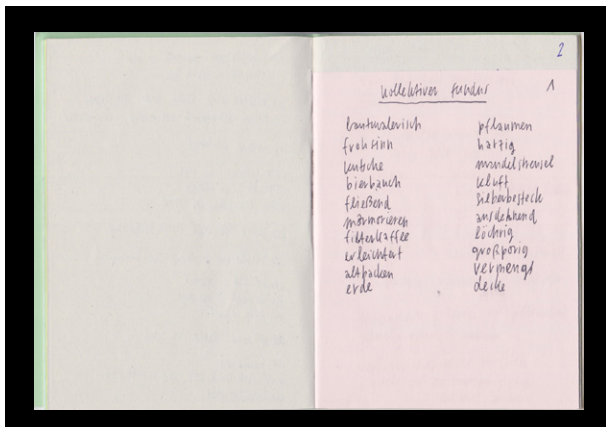 2
kollektiver fundus
1
lautmalerisch
frohsinn
kutsche
bierbauch
fließend
marmorieren
filterkaffee
erleichtert
altbacken
erde
pflaumen
harzig
mandelstreusel
kluft
silberbesteck
ausdehnend
löchrig
großporig
vermengt
decke